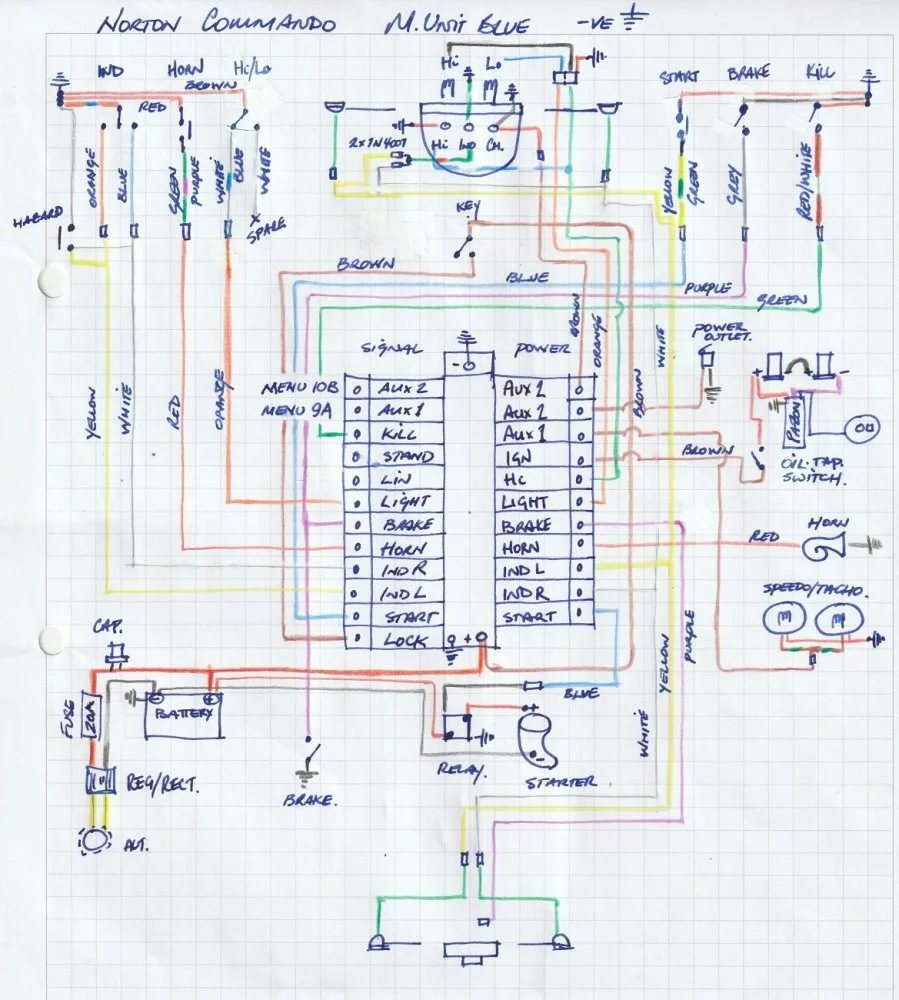 NORTON COMMANDO M.UNIT BLUE -VE
IND HORN Hi/Lo
BROWN
RED
Hi Lo
START BRAKE KILL
2x1N4007
Hi IND CH.
ORANGE
BLUE
GREEN
PURPLE
WHITE
BLUE
WHITE
YELLOW
GREEN
GREY
RED/WHITE
HAZARD
X SPARE
KEY
BROWN
BLUE
PURPLE
GREEN
BROWN
ORANGE
WHITE
BROWN
POWER OUTLET.
SIGNAL
-
POWER
MENU 10B AUX 2
MENU 9A AUX 1
KILL
STAND
LIN
LIGHT
BRAKE
HORN
IND R
IND L
START
LOCK
+
AUX 2
AUX 2
AUX 1
IGN
Hc
LIGHT
BRAKE
HORN
IND L
IND R
START
YELLOW
WHITE
RED
ORANGE
BROWN
+ -
PAZON
OIL TAP.
SWITCH.
RED
HORN
SPEEDO/TACHO.
CAP.
FUSE
20A
- +
BATTERY
REG/RECT.
ALT.
BRAKE.
BLUE
RELAY.
+
-
STARTER.
WHITE
YELLOW
PURPLE